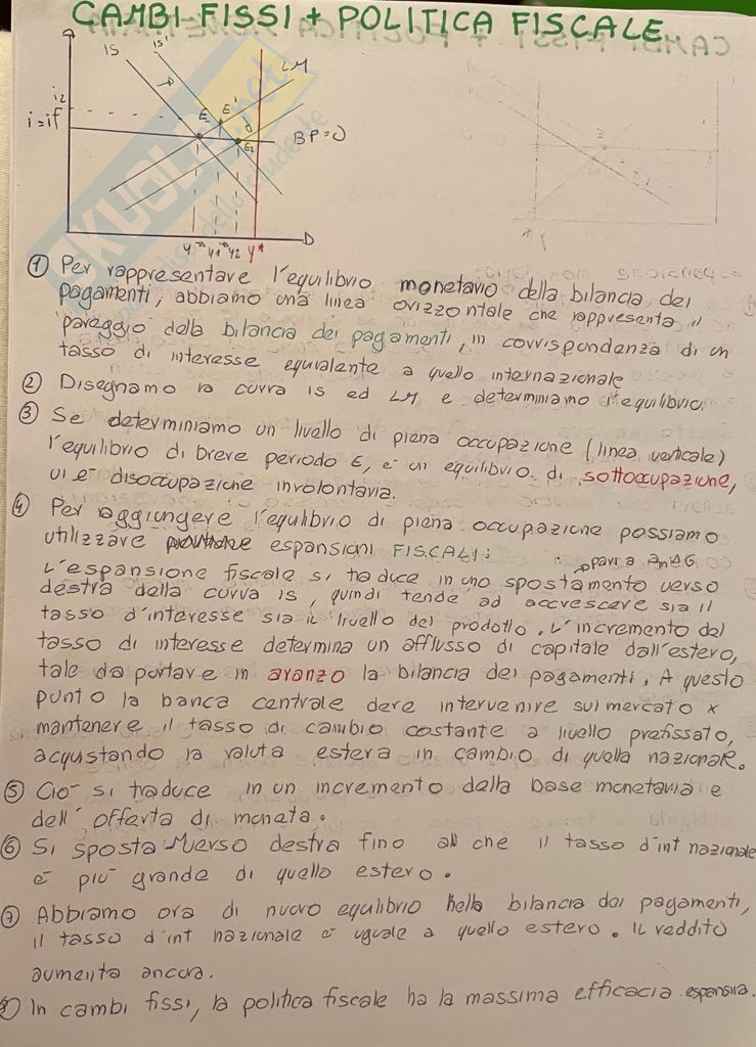 CAMBI FISSI + POLITICA FISCALE
IS IS' LM
i2
i=if
E E'
E2
BP=0
y* y1 y2 y*
① Per rappresentare l'equilibrio monetario della bilancia dei
pagamenti, abbiamo una linea orizzontale che rappresenta il
pareggio della bilancia dei pagamenti, in corrispondenza di un
tasso di interesse equivalente a quello internazionale
② Disegnamo la curva IS ed LM e determiniamo l'equilibrio.
③ Se determiniamo un livello di piena occupazione (linea verticale)
l'equilibrio di breve periodo E, è un equilibrio di sottoccupazione,
vi è disoccupazione involontaria.
④ Per raggiungere l'equilibrio di piena occupazione possiamo
utilizzare espansioni FISCALI:
pari a
L'espansione fiscale si traduce in uno spostamento verso
destra della curva IS, quindi tende ad accrescere sia il
tasso d'interesse sia il livello del prodotto. L'incremento del
tasso di interesse determina un afflusso di capitale dall'estero,
tale da portare in avanzo la bilancia dei pagamenti. A questo
punto la banca centrale deve intervenire sul mercato x
mantenere il tasso di cambio costante a livello prefissato,
acqustando la valuta estera in cambio di quella nazionale.
⑤ Ciò si traduce in un incremento della base monetaria e
dell'offerta di moneta.
⑥ Si sposta verso destra fino che il tasso d'int nazionale
è più grande di quello estero.
⑦ Abbiamo ora di nuovo equilibrio nella bilancia dei pagamenti,
il tasso d'int nazionale è uguale a quello estero. Il reddito
aumenta ancora.
⑧ In cambi fissi, la politica fiscale ha la massima efficacia espansiva.